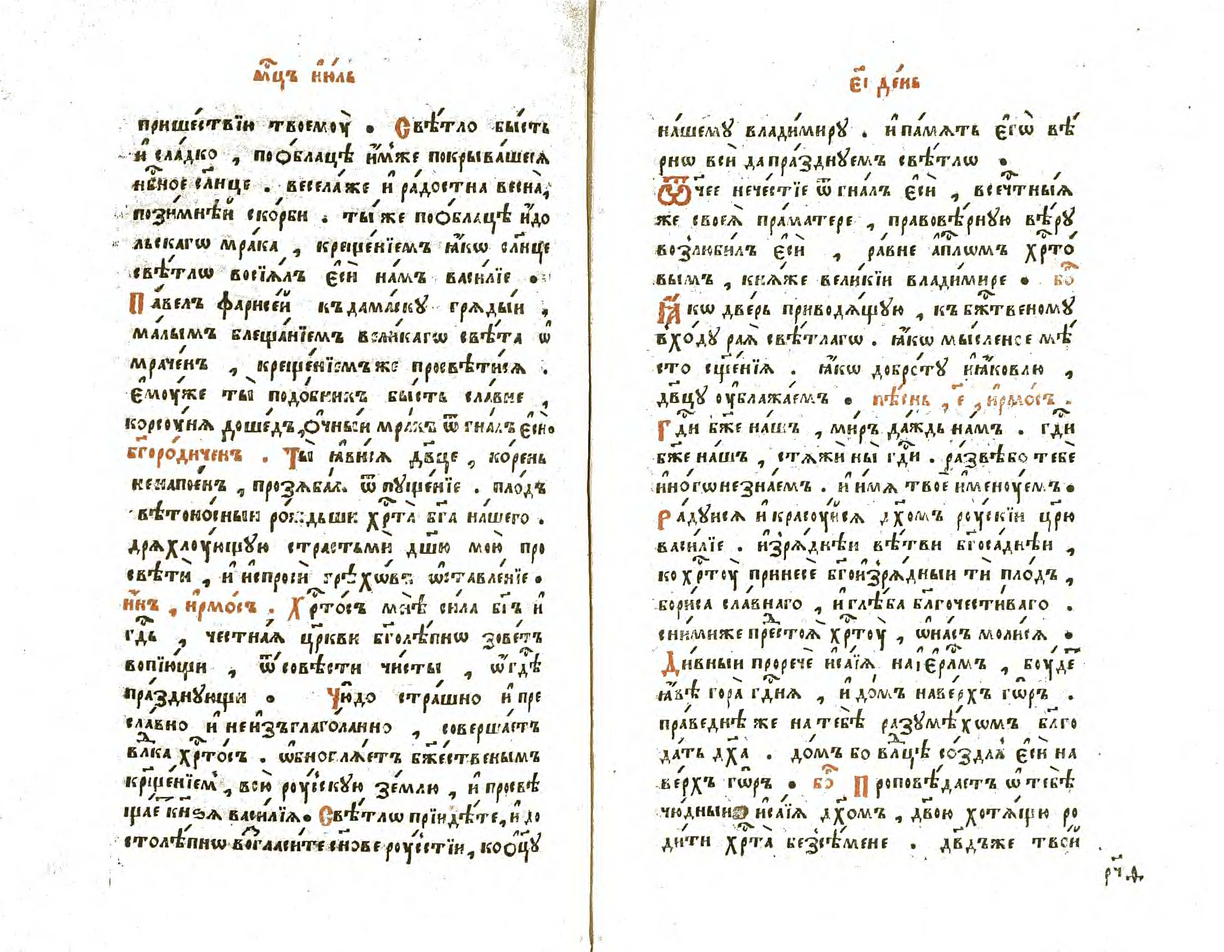 мⷭ҇цъ ию́ль
прише́ствїю твоемоу̀ . Свѣ́тло бы́сть
и҆ сла́дко , поѻ҆́блацѣ и҆́мже покрыва́шесѧ
нб҃ное сл҃нце . весела́же и҆ ра́достна весна̀,
позимнѣ́й ско́рби . ты́ же поѻ҆́блацѣ и҆́до
льскагѡ мра́ка , креще́нїемъ ꙗ҆́кѡ сл҃нце
свѣ́тлѡ восїѧ́лъ є҆сѝ на́мъ васи́лїе .
Па́велъ фарисе́й къдама́ску грѧды́и ,
ма́лымъ блеща́нїемъ вели́кагѡ свѣ́та ѡ҆
мраче́нъ , креще́нїемъже просвѣти́сѧ .
є҆моу́же ты̀ подо́бникъ бы́сть сла́вне ,
корсоу́нѧ доше́дъ, ѻ҆́чныи мра́къ ѿгна́лъ є҆сѝ.
бг҃оро́диченъ . Ты̀ ꙗ҆ви́сѧ дв҃це , ко́рень
ненапое́нъ , прозѧба́ѧ ѿпуще́нїе . пло́дъ
свѣтоно́сныи ро́ждьши хрⷭ҇та̀ бг҃а на́шего .
дрѧхлоу́ющую страстьмѝ дш҃ю мою̀ про
свѣтѝ , и҆ и҆спросѝ грѣхо́въ ѡ҆ставле́нїе .
и҆́нъ , и҆рмо́съ . Хрⷭ҇то́съ мнѣ̀ си́ла бг҃ъ и҆
гд҃ь , честна́ѧ цр҃кви бг҃олѣ́пнѡ зове́тъ
вопїю́щи , ѿ со́вѣсти чи́сты , ѡ҆ гдⷭ҇ѣ
пра́зднующи . Чю́до стра́шно и҆ пре
сла́вно и҆ неи҆зъглаго́ланно , соверша́етъ
влⷣка хрⷭ҇то́съ . ѡ҆бновлѧ́етъ бж҃ественымъ
крⷭ҇ще́нїемъ, всю̀ роу́сскую зе́млю , и҆ просвѣ
ща́етъ кн҃зѧ васи́лїѧ. Свѣ́тлѡ прїидѣ́те, и҆ до
столѣ́пнѡ во́гласите сн҃ове роу́сстїи, коѻ҆ц҃у
є҃і де́нь
на́шему влади́миру . и҆ па́мѧть є҆гѡ̀ вѣ́
рнѡ всѝ да пра́зднуемъ свѣ́тлѡ .
Ѿчее нече́стїе ѿгна́лъ є҆сѝ , всечⷭ҇тны́ѧ
же своеѧ̀ пра́матере , правовѣ́рную вѣ́ру
возлюби́лъ є҆сѝ , ра́вне а҆пⷭ҇лѡмъ хрⷭ҇то́
вымъ , кнѧ́же вели́кїи влади́мире . бо҃
Ꙗ҆́кѡ две́рь приводѧ́щую , къ бжⷭ҇твеному
вхо́ду раѧ̀ свѣ́тлагѡ . ꙗ҆́кѡ мы́сленое мѣ́
сто сщ҃е́нїѧ . ꙗ҆́кѡ добро́ту и҆ꙗ́ковлю ,
дв҃цу оу҆блажа́емъ . пѣ́снь , є҃ , и҆рмо́съ .
Гдⷭ҇и бж҃е на́шъ , ми́ръ да́ждь на́мъ . гдⷭ҇и
бж҃е на́шъ , стѧжи́ ны гдⷭ҇и . ра́звѣбо тебе
и҆но́гѡнезна́емъ . и҆ и҆мѧ̀ твоѐ и҆менꙋ́емъ .
Ра́дуисѧ и҆ красоу́йсѧ дх҃омъ роу́скїи цр҃ю
васи́лїе . и҆зрѧ́днѣи вѣ́тви бг҃оса́днѣи ,
ко хрⷭ҇тоу̀ принесѐ бг҃ои҆зрѧ́дныи тѝ пло́дъ ,
бори́са сла́внаго , и҆ глѣ́ба бл҃гочести́ваго .
сни́миже престоѧ̀ хрⷭ҇тоу̀ , ѡ҆на́съ моли́сѧ .
Ди́вныи прорече и҆са́їѧ наі҆є҆рⷭ҇ли́мъ , боу́детъ
ꙗ҆́вѣ гора̀ гдⷭ҇нѧ , и҆ до́мъ наве́рхъ го́ръ .
пра́веднѣ же на тебѣ̀ разумѣ́хѡмъ бл҃го
да́ть дх҃а . до́мъ бо влⷣцѣ созда́лъ є҆сѝ на
ве́рхъ го́ръ . бо҃ Проповѣ́даетъ ѡ҆ тебѣ̀
чю́дныи и҆са́їѧ дх҃омъ , дв҃ою хотѧ́щю ро
ди́ти хрⷭ҇та̀ безсѣ́мене . дв҃дъже твои́
рч҃д